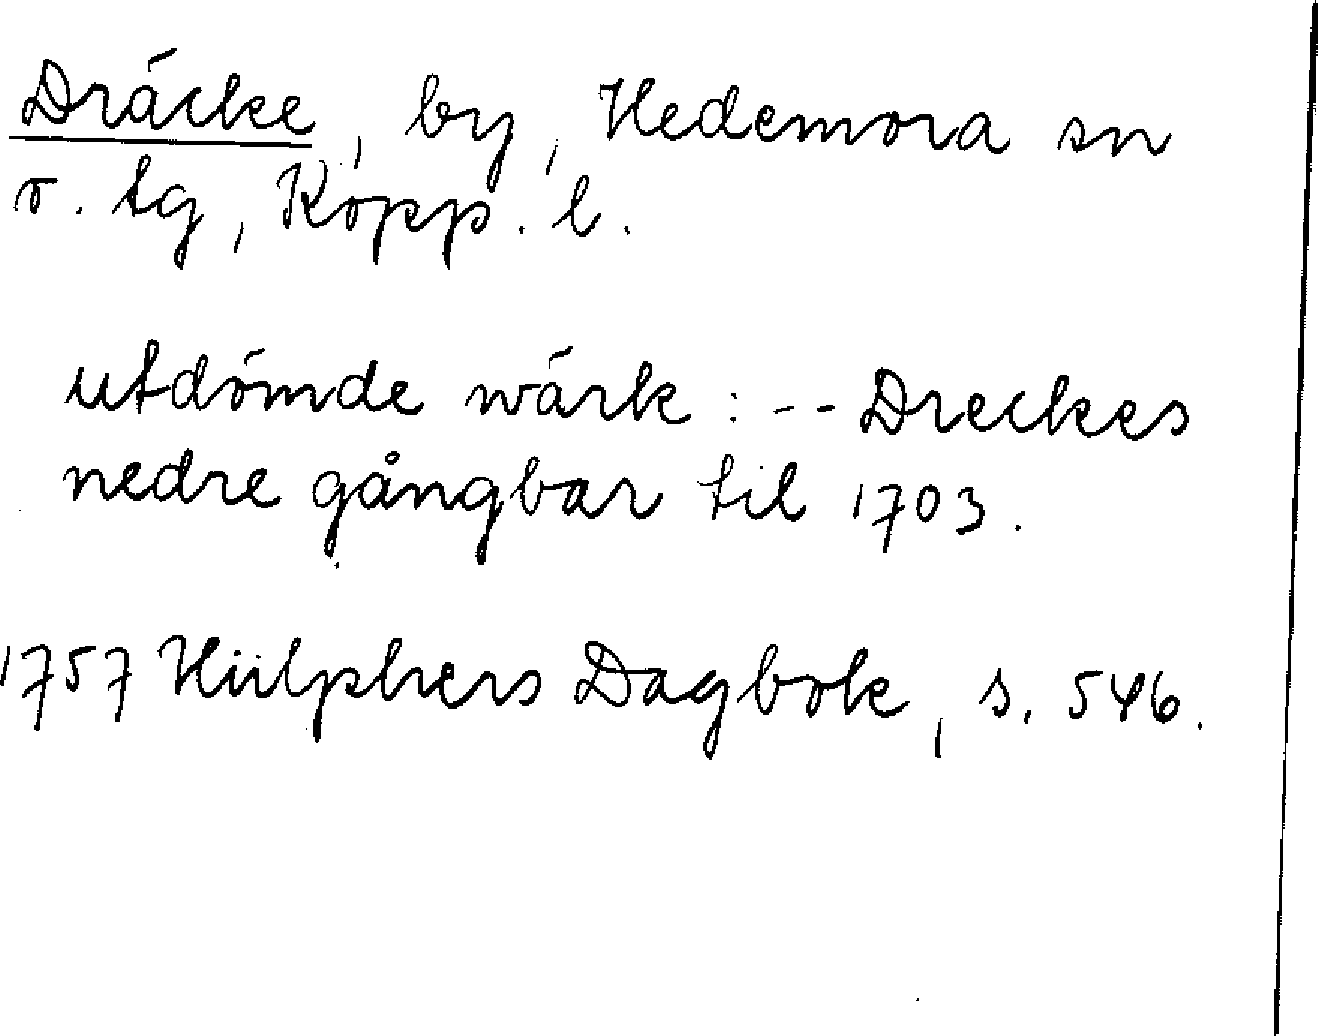 Dräcke, by, Hedemora sn
o. tg, Kopp. l.
utdömde wärk : -- Dreckes
nedre gångbar til 1703.
1757 Hülphers Dagbok, s. 546.